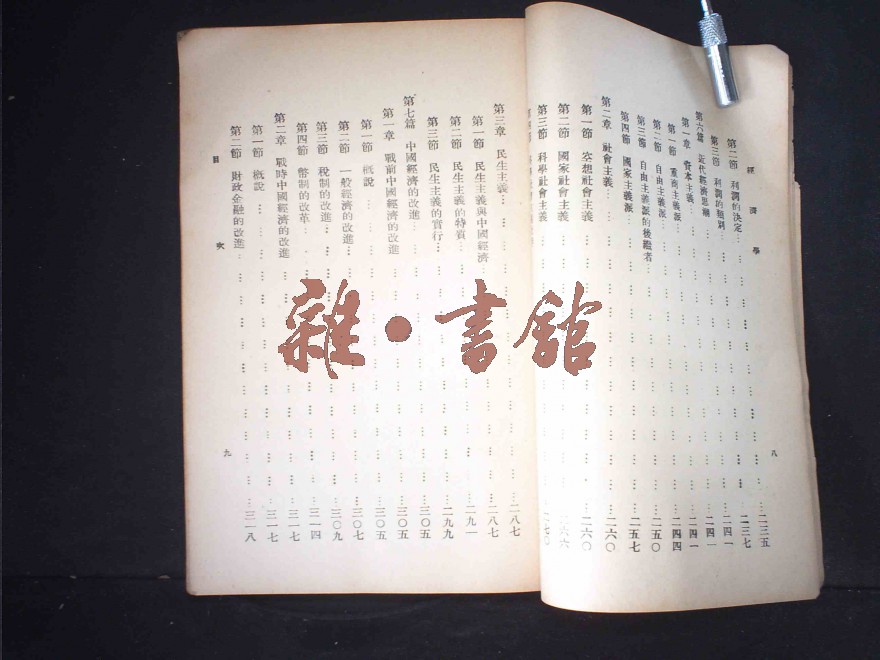 經濟學
第二節 利潤的決定……二三五
第三節 利潤的類別……二三七
第六篇 近代經濟思潮……二四一
第一章 資本主義……二四一
第一節 重商主義派……二四一
第二節 自由主義派……二四四
第三節 自由主義派的後繼者……二五〇
第四節 國家主義派……二五七
第二章 社會主義……二六〇
第一節 空想社會主義……二六〇
第二節 國家社會主義……二六六
第三節 科學社會主義……二七〇
八
第三章 民生主義……二八七
第一節 民生主義與中國經濟……二八七
第二節 民生主義的特質……二九一
第三節 民生主義的實行……二九九
第七篇 中國經濟的改進……三〇五
第一章 戰前中國經濟的改進……三〇五
第一節 概說……三〇五
第二節 一般經濟的改進……三〇七
第三節 稅制的改進……三〇九
第四節 幣制的改革……三一四
第二章 戰時中國經濟的改進……三一七
第一節 概說……三一七
第二節 財政金融的改進……三一八
目次
九
雜·書館